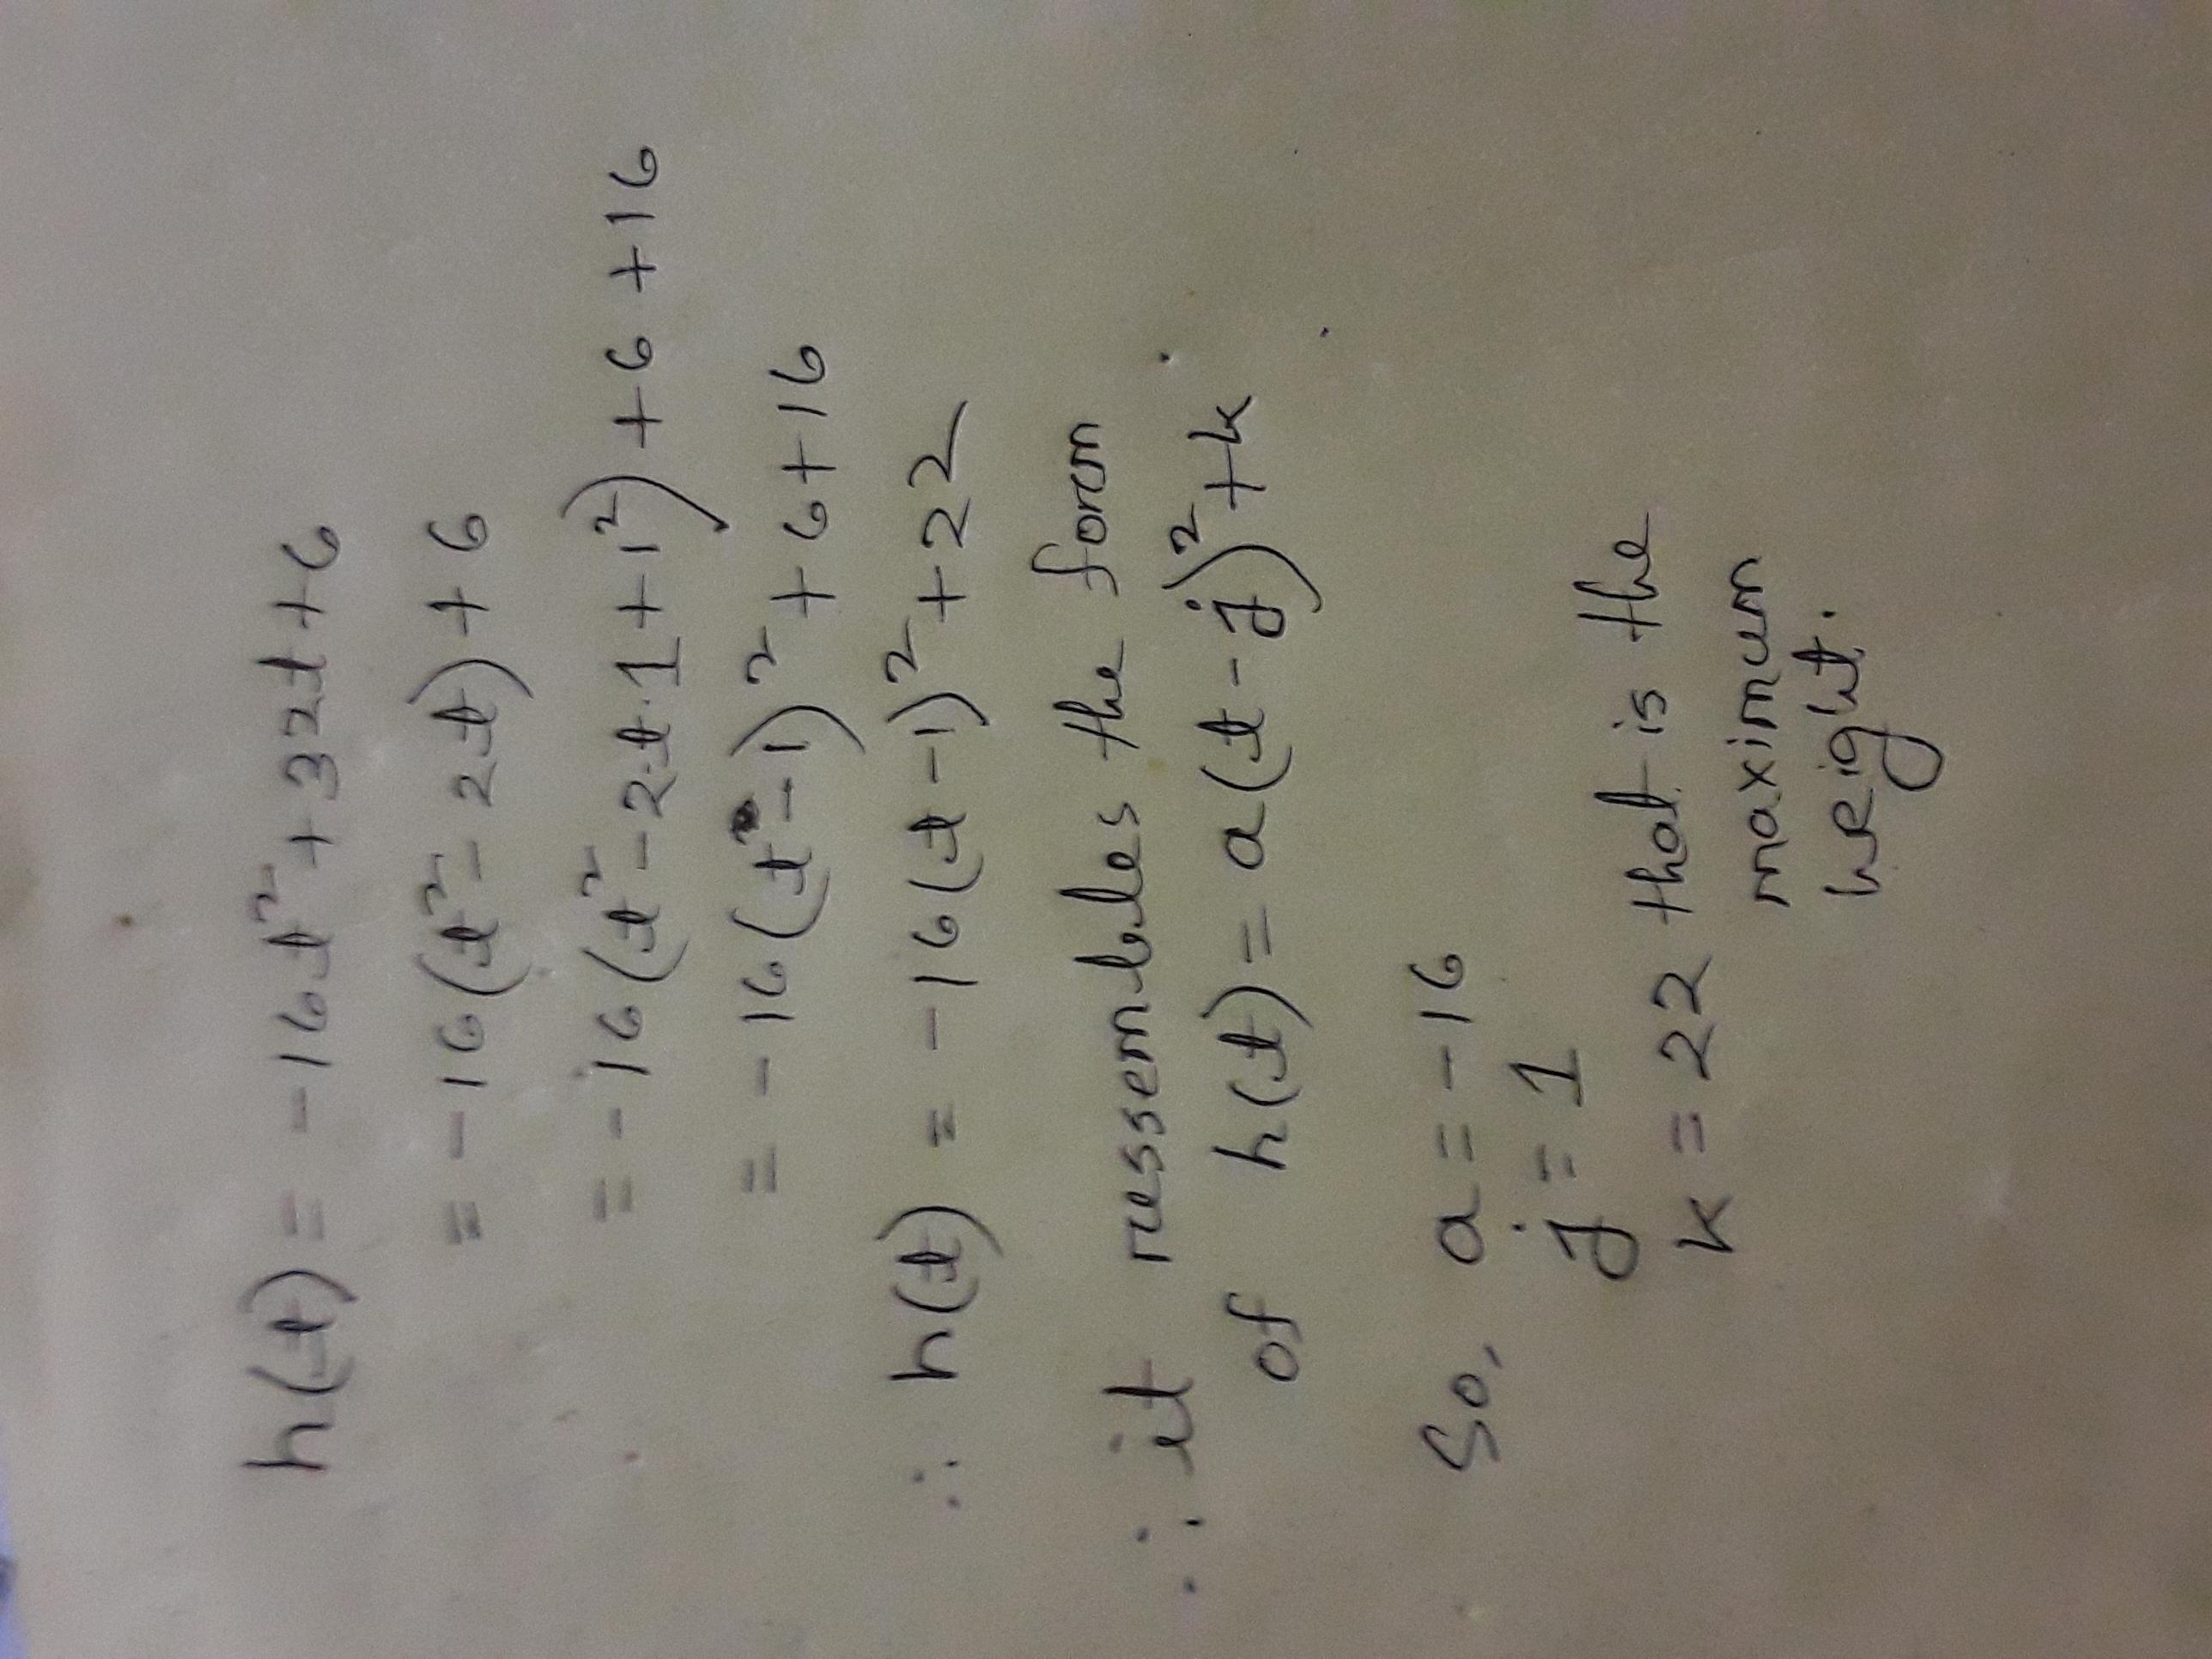 h(t) = -16t² + 32t + 6
= -16(t² - 2t) + 6
= -16(t² - 2·t·1 + 1²) + 6 + 16
= -16(t - 1)² + 6 + 16
∴ h(t) = -16(t - 1)² + 22
∴ it ressembles the form
of h(t) = a(t - j)² + k
So, a = -16
j = 1
k = 22 that is the
maximum
height.